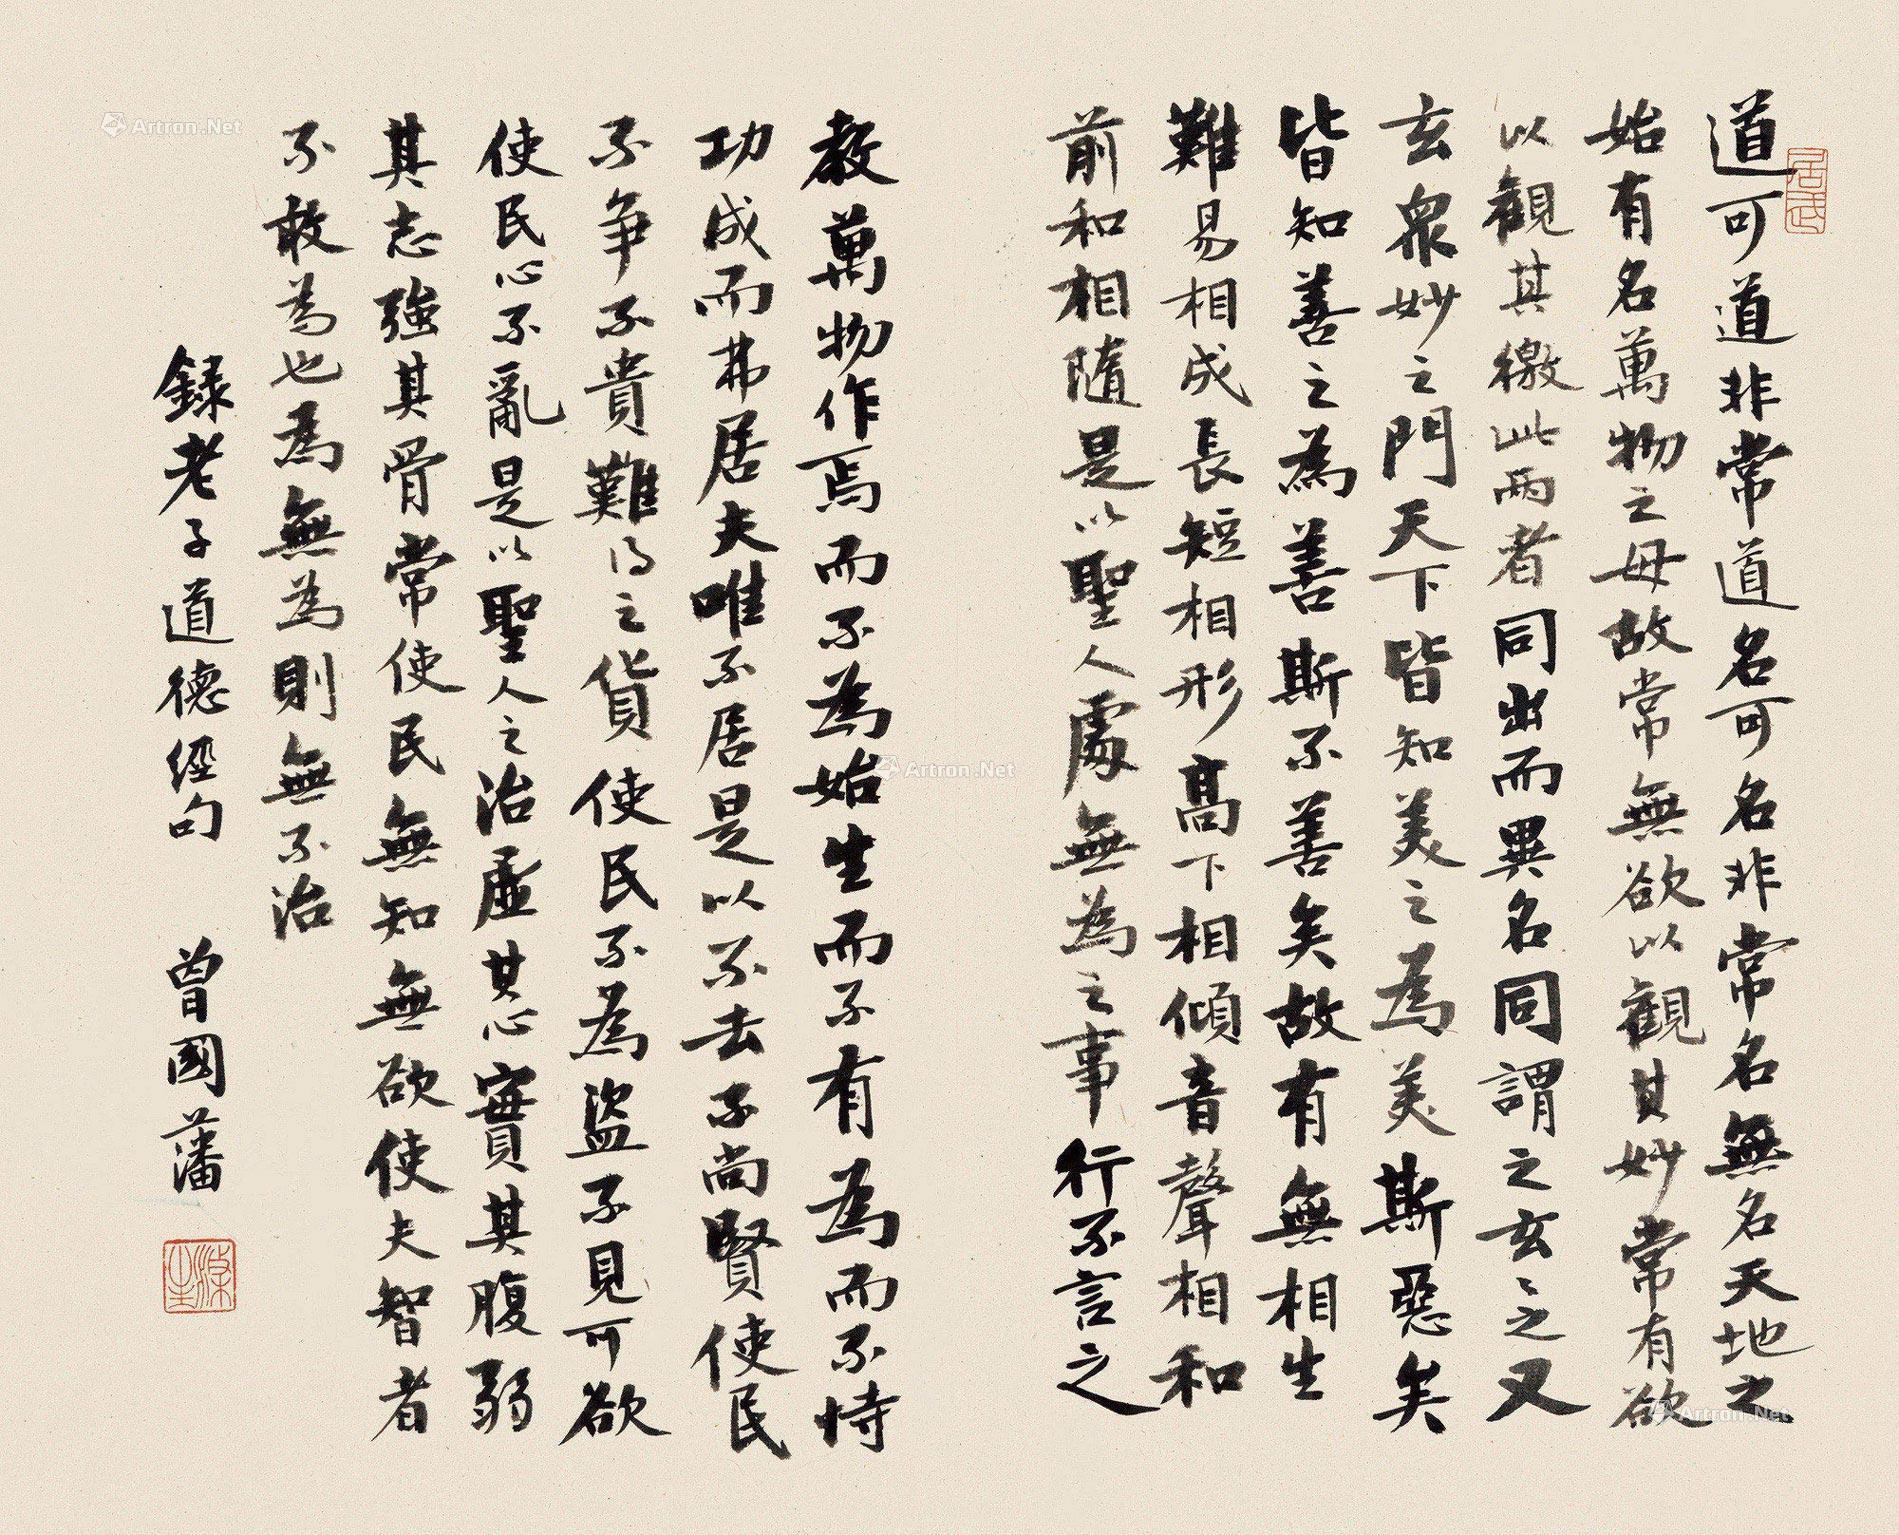 道可道非常道名可名非常名無名天地之
始有名萬物之母故常無欲以觀其妙常有欲
以觀其徼此兩者同出而異名同謂之玄々之又
玄衆妙之門天下皆知美之為美斯惡矣
皆知善之為善斯不善矣故有無相生
難易相成長短相形高下相傾音聲相和
前和相隨是以聖人處無為之事行不言之
教萬物作焉而不為始生而不有為而不恃
功成而弗居夫唯不居是以不去不尚賢使民
不爭不貴難得之貨使民不為盜不見可欲
使民心不亂是以聖人之治虛其心實其腹弱
其志強其骨常使民無知無欲使夫智者
不敢為也為無為則無不治
錄老子道德經句 曾國藩
滌生
Artron.Net
Artron.Net
Artron.Net